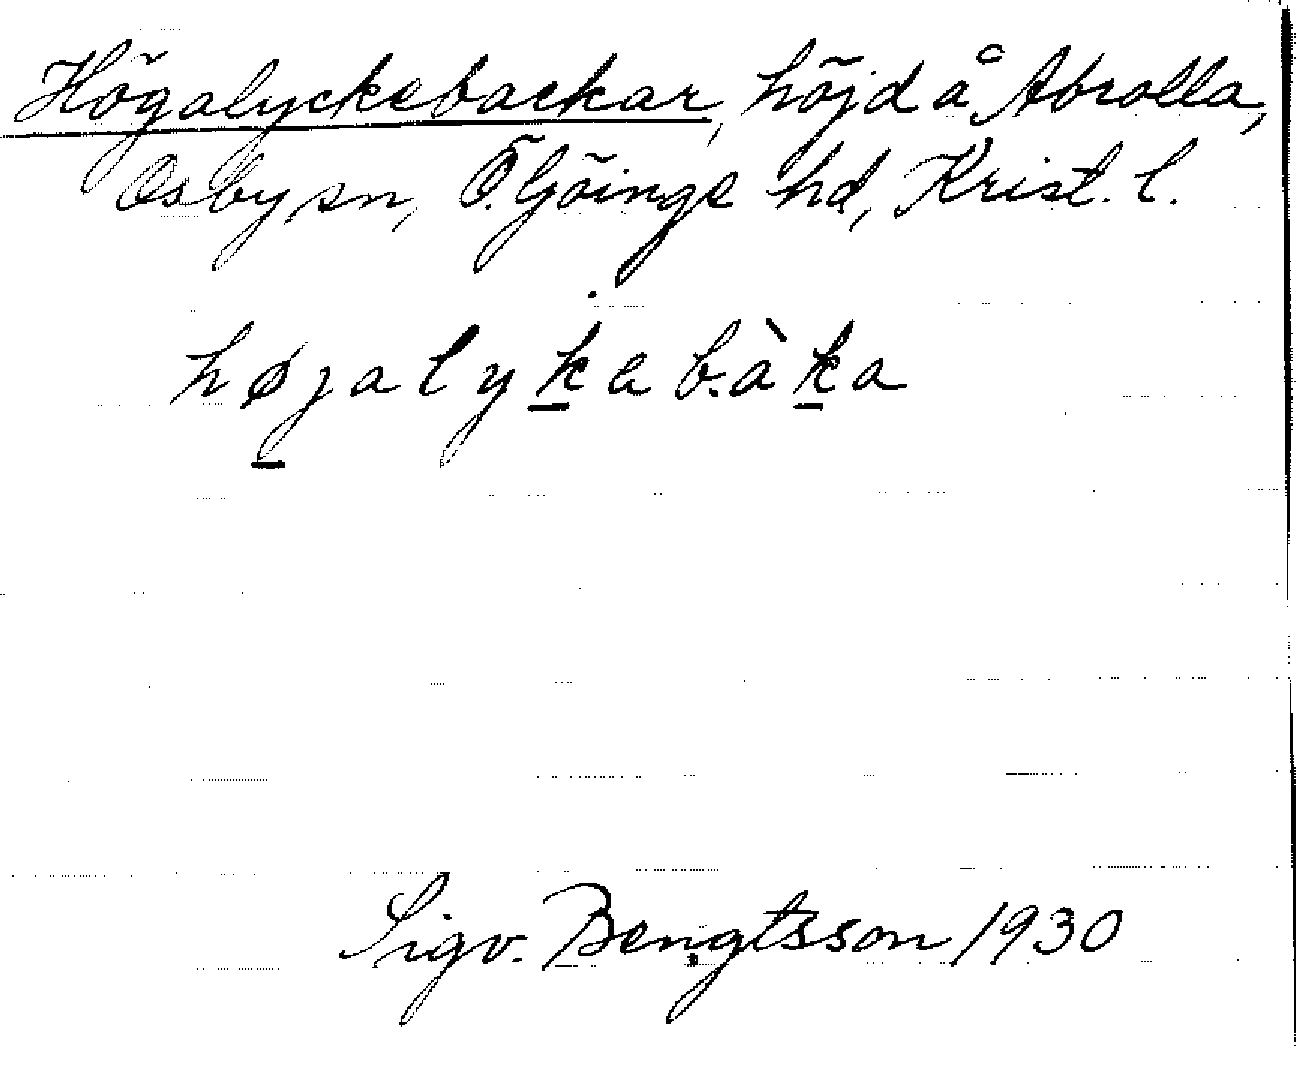 Högalyckebackar, höjd å Abrolla,
Osby sn, Ö. Göinge hd, Krist. l.
højalykebàka
Sigv. Bengtsson 1930